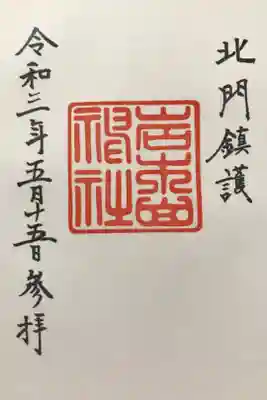 北門鎮護
岩木山
神社
令和三年五月十五日参拝